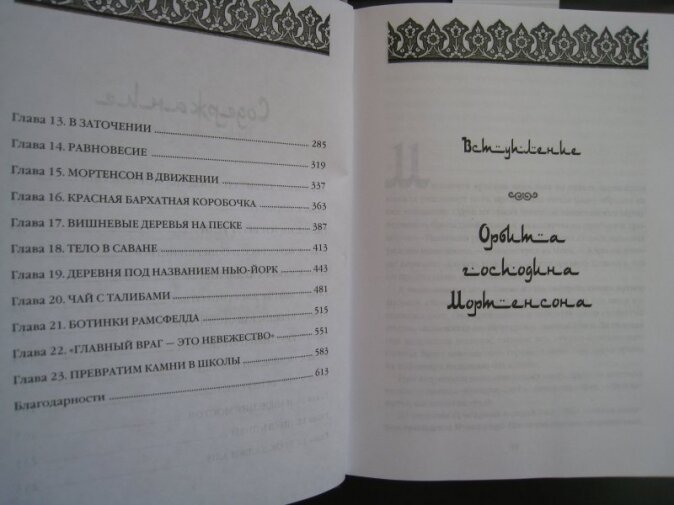 Глава 13. В ЗАТОЧЕНИИ 285
Глава 14. РАВНОВЕСИЕ 319
Глава 15. МОРТЕНСОН В ДВИЖЕНИИ 337
Глава 16. КРАСНАЯ БАРХАТНАЯ КОРОБОЧКА 363
Глава 17. ВИШНЕВЫЕ ДЕРЕВЬЯ НА ПЕСКЕ 387
Глава 18. ТЕЛО В САВАНЕ 413
Глава 19. ДЕРЕВНЯ ПОД НАЗВАНИЕМ НЬЮ-ЙОРК 443
Глава 20. ЧАЙ С ТАЛИБАМИ 481
Глава 21. БОТИНКИ РАМСФЕЛДА 515
Глава 22. «ГЛАВНЫЙ ВРАГ — ЭТО НЕВЕЖЕСТВО» 551
Глава 23. ПРЕВРАТИМ КАМНИ В ШКОЛЫ 583
Благодарности 613
Вступление
Орбита
господина
Мортенсона